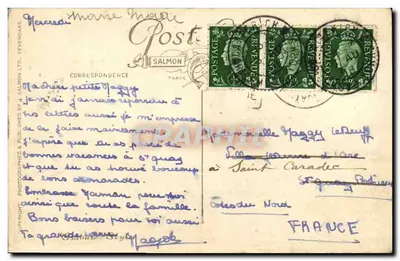 Mercredi
Post
SALMON
TRADE
CORRESPONDENCE
POSTAGE REVENUE
POSTAGE REVENUE
POSTAGE REVENUE
PHOTOGRAPHED & PUBLISHED BY J. SALMON LTD. SEVENOAKS.
petite Maggy
je n'ai jamais répondu à
tes lettres aussi je m'empresse
de faire maintenant
J'espère que tu as passé de
bonnes vacances à St Quay
et que tu as trouvé beaucoup
de bons camarades.
Embrasse Maman pour moi
ainsi que toute la famille.
Bons baisers pour toi aussi
Ta grande
Mademoiselle Maggy
Villa Jeanne d'Arc
à Saint Caradec
St Quay
Côtes du Nord
FRANCE